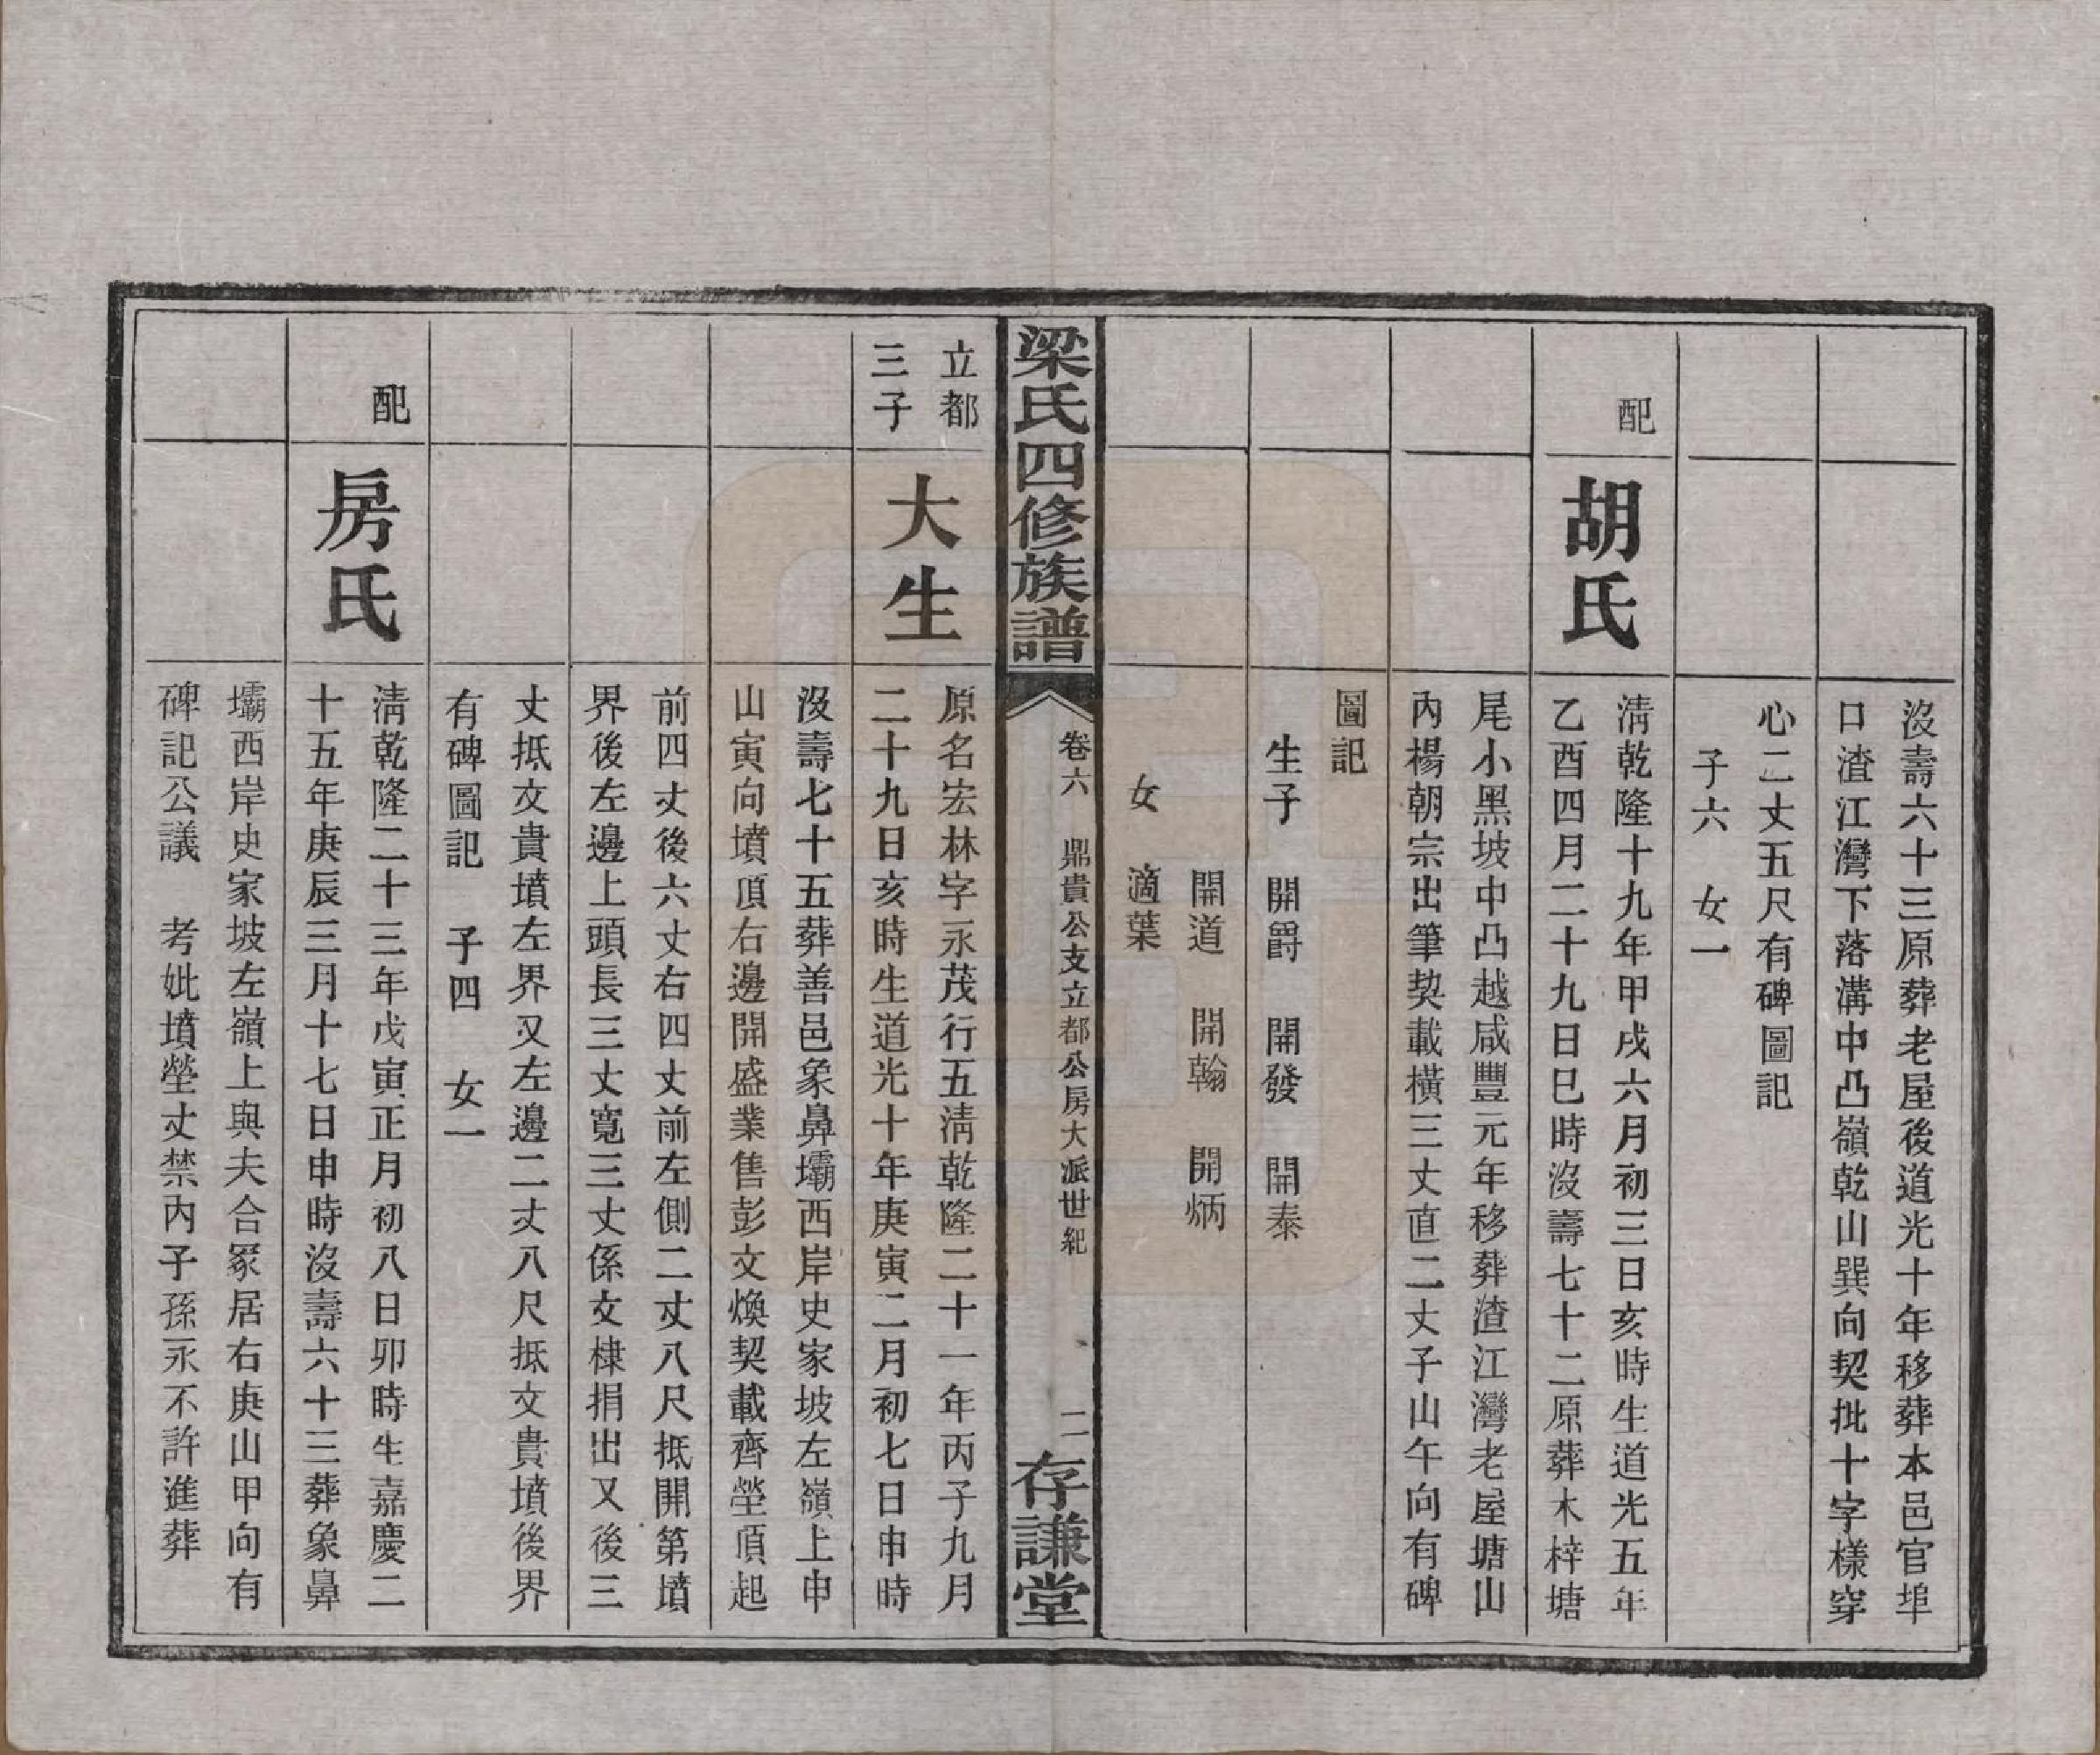 沒壽六十三原葬老屋後道光十年移葬本邑官埠
口渣江灣下落溝中凸嶺乾山巽向契批十字樣穿
心二丈五尺有碑圖記
子六　女一
配
胡氏
清乾隆十九年甲戌六月初三日亥時生道光五年
乙酉四月二十九日巳時沒壽七十二原葬木梓塘
尾小黑坡中凸越咸豐元年移葬渣江灣老屋塘山
內楊朝宗出筆契載橫三丈直二丈子山午向有碑
圖記
生子　開爵　開發　開泰
開道　開翰　開炳
女　適葉
梁氏四修族譜
卷六　鼎貴公支立都公房大派世紀
二
存謙堂
立都
三子
大生
原名宏林字永茂行五清乾隆二十一年丙子九月
二十九日亥時生道光十年庚寅二月初七日申時
沒壽七十五葬善邑象鼻壩西岸史家坡左嶺上申
山寅向墳頂右邊開盛業售彭文煥契載齊塋頂起
前四丈後六丈右四丈前左側二丈八尺抵開第墳
界後左邊上頭長三丈寬三丈係文棣捐出又後三
丈抵文貴墳左界又左邊二丈八尺抵文貴墳後界
有碑圖記　子四　女一
配
房氏
清乾隆二十三年戊寅正月初八日卯時生嘉慶二
十五年庚辰三月十七日申時沒壽六十三葬象鼻
壩西岸史家坡左嶺上與夫合冢居右庚山甲向有
碑記公議　考妣墳塋丈禁內子孫永不許進葬